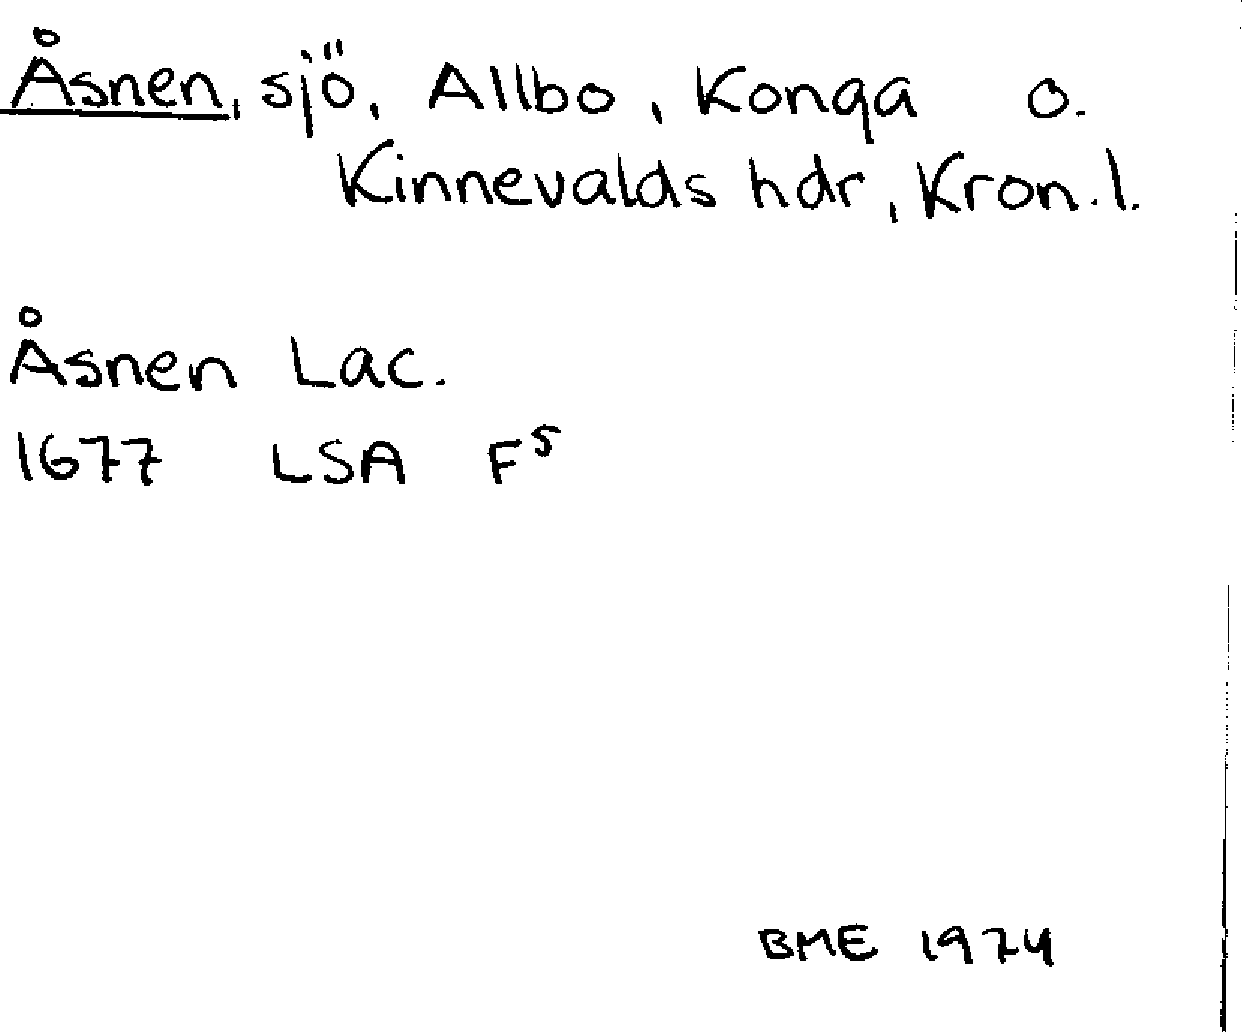 Åsnen, sjö, Allbo, Konga o.
Kinnevalds hdr, Kron.l.
Åsnen Lac.
1677 LSA F⁵
BME 1974